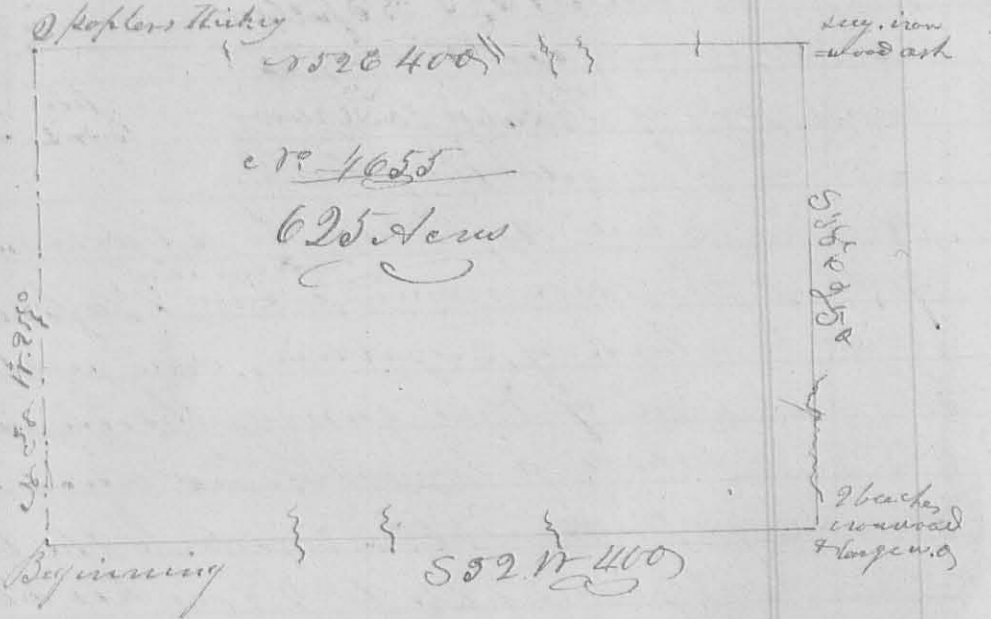 2 poplers & hickry
sug. iron
=wood ash
N52E 400
No 4655
625 Acres
S38E 250
N38 W. 250
2 beeches
ironwood
& large w.o
Beginning
S52 W 400